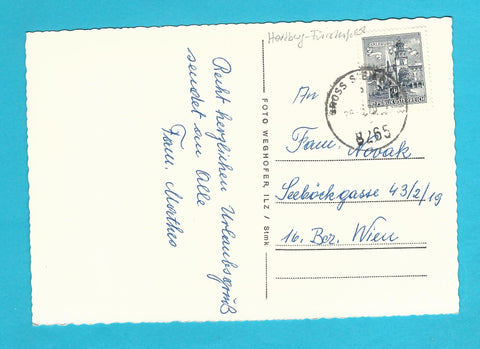 Hartberg-Fürstenfeld
Recht herzlichen Urlaubsgruß
sendet an Alle
Fam.
FOTO WEGHOFER, ILZ / Stmk
GROSS ST
8265
REPUBLIK ÖSTERREICH
An
Fam. Novak
Seeböckgasse 43/2/19
16. Bez. Wien